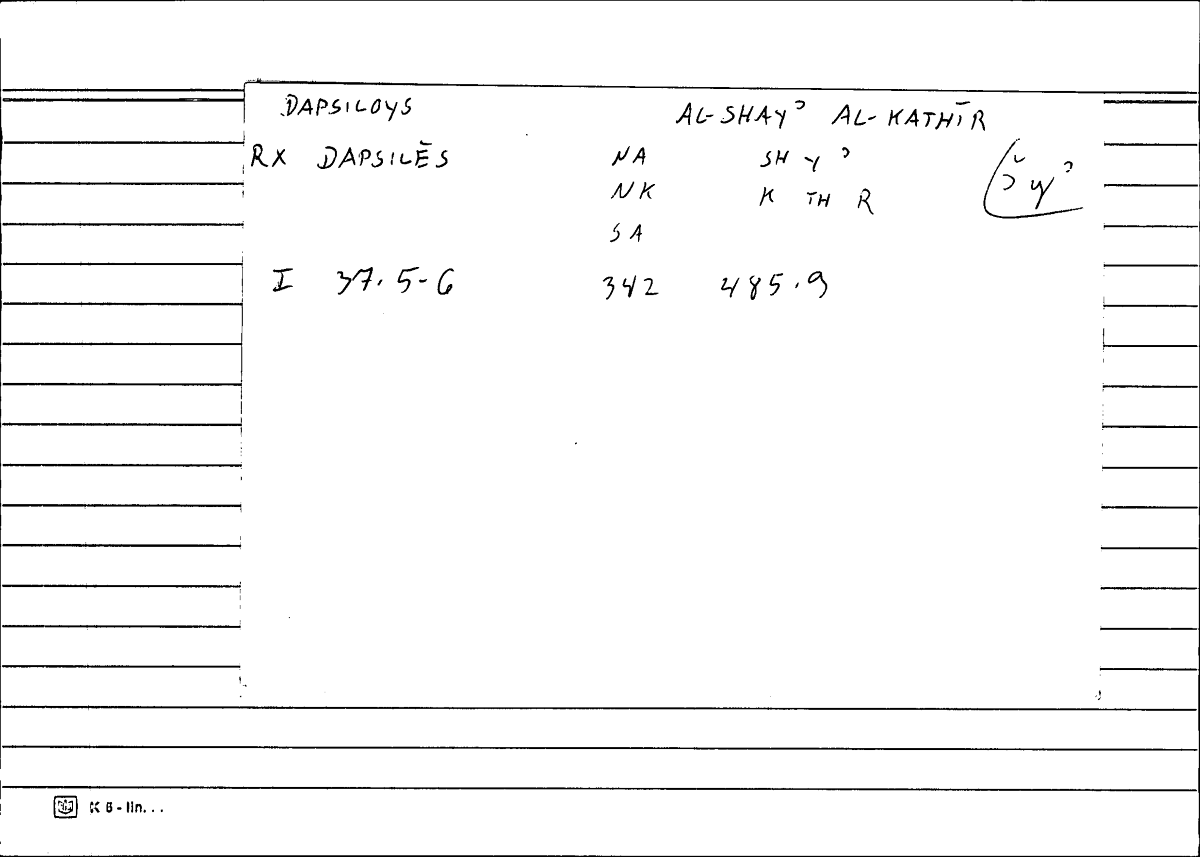 DAPSILOYS AL-SHAYʾ AL-KATHĪR
RX DAPSILĒS NA SH Y ʾ
NK K TH R
SA
I 37.5-6 342 485.9
K 6 - lin...